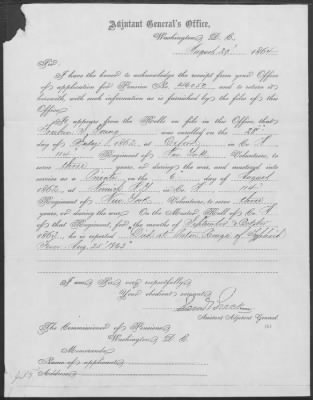 Adjutant General's Office,
Washington, D. C.
August 29th 1864
Sir:
I have the honor to acknowledge the receipt from your Office
of application for Pension No. and to return it
herewith, with such information as is furnished by the files of this
Office.
It appears from the Rolls on file in this Office, that
Young was enrolled on the 28th
day of 1862, at Oxford in Co. A
114th Regiment of New York Volunteers, to
serve three years, or during the war, and mustered into
service as a Private on the 6 day of August
1862, at Norwich N.Y. in Co. A 114th
Regiment of New York Volunteers, to serve three
years, or during the war. On the Muster Roll of Co. A
of that Regiment, for the months of September & October
1863, he is reported Died at Baton Rouge of Typhoid
Fever Aug. 25 1863
I am, Sir, very respectfully,
Your obedient servant,
Assistant Adjutant General
The Commissioner of Pensions
Washington, D. C.
Memoranda:
Name of applicant,
Address,